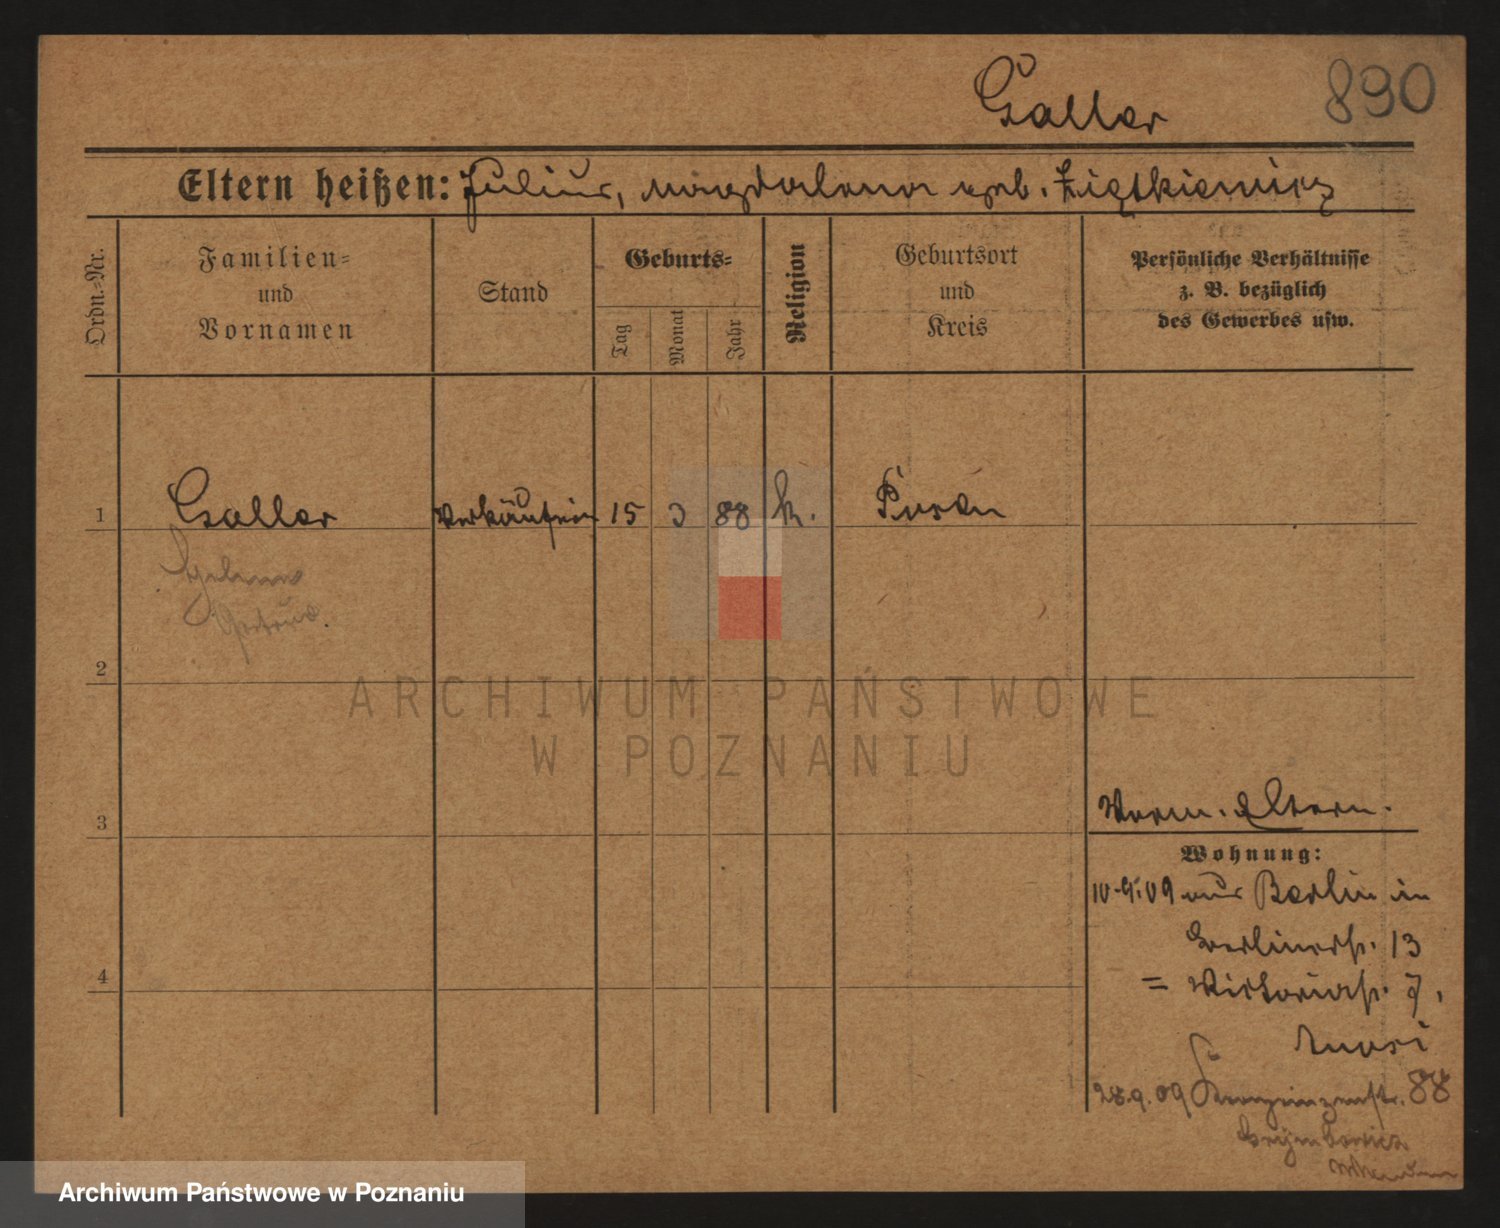 Galler
890
Eltern heißen: Julius, Magdalena geb. Ziętkiewicz
Ordn.-Nr.
Familien-
und
Vornamen
Stand
Geburts-
Tag
Monat
Jahr
Religion
Geburtsort
und
Kreis
Persönliche Verhältnisse
z. B. bezüglich
des Gewerbes usw.
1 Galler Verkäuferin 15 3 88 k. Posen
Gertrud.
2
3
4
ARCHIWUM PAŃSTWOWE
W POZNANIU
Eltern.
Wohnung:
10.9.09 aus Berlin in
Berlinerstr. 13
= Viktoriastr. 7,
28.9.09 Kronprinzenstr. 88
Archiwum Państwowe w Poznaniu